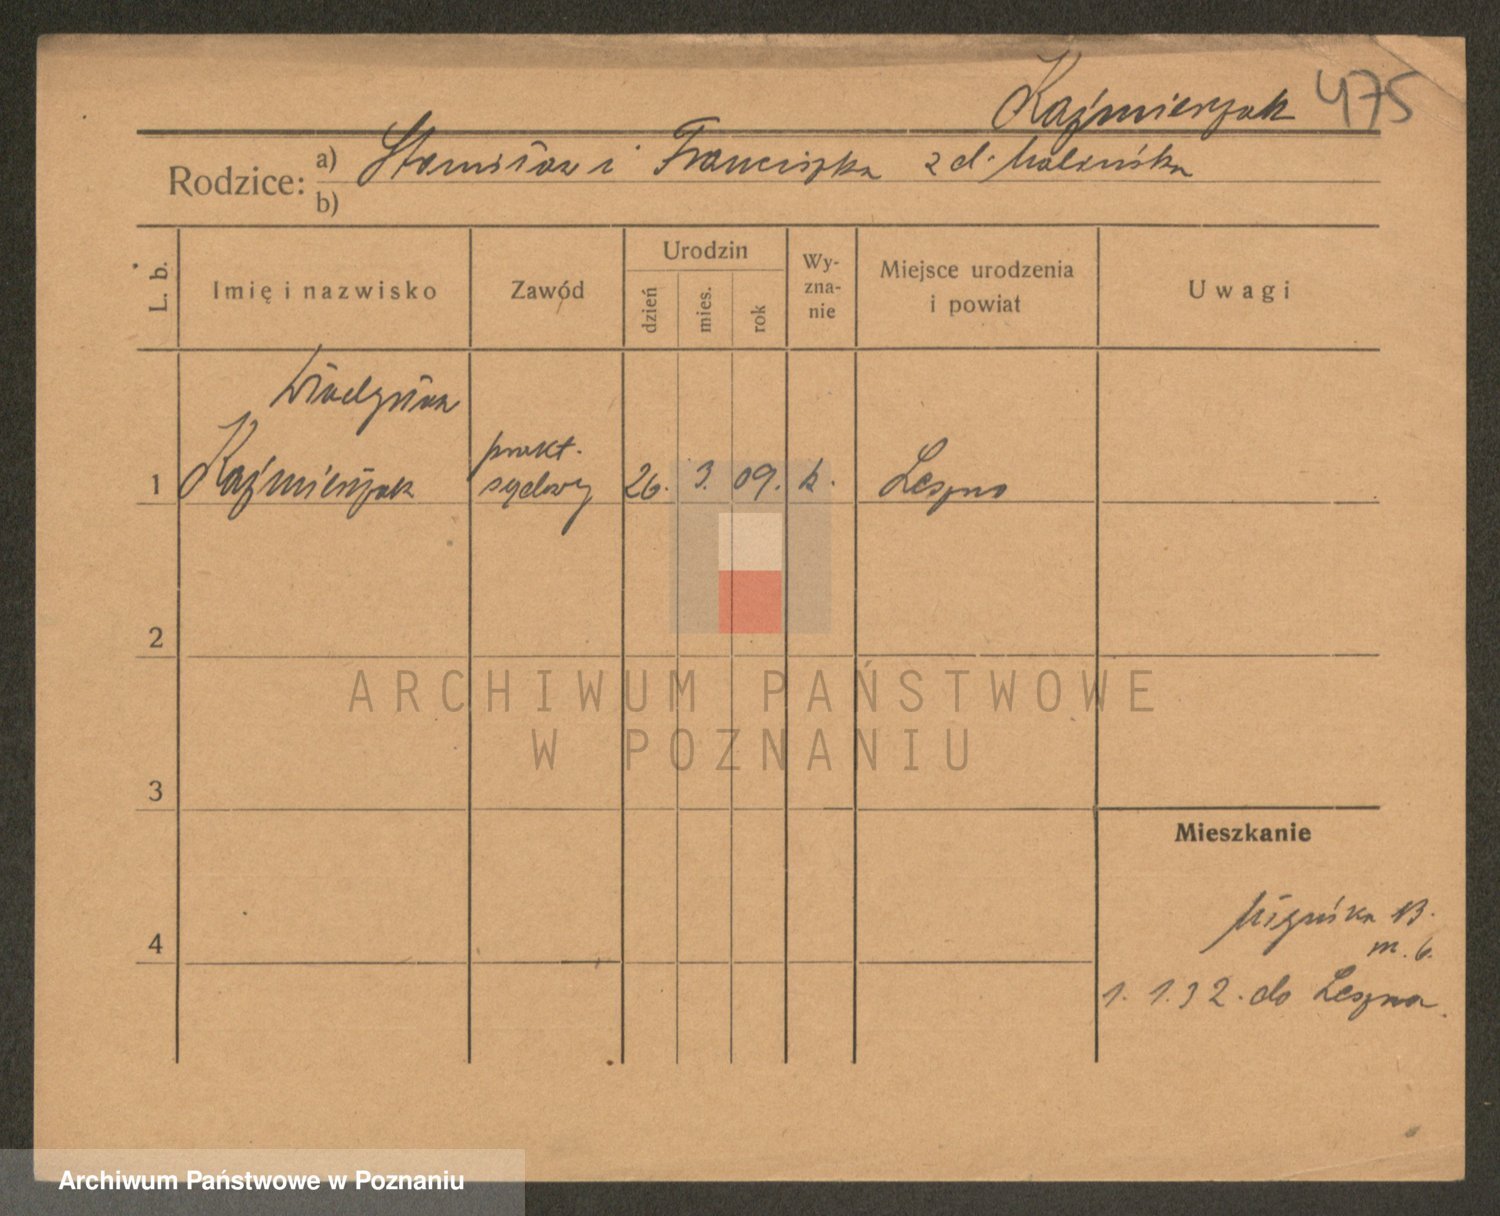 Kaźmierzak 475
Rodzice: a) Stanisław i Franciszka z d. Malińska
b)
L. b. Imię i nazwisko Zawód Urodzin dzień mies. rok Wy-zna-nie Miejsce urodzenia i powiat Uwagi
Władysław
Kaźmierzak
prakt.
sądowy
1 26. 3. 09. k. Leszno
2
ARCHIWUM PAŃSTWOWE
W POZNANIU
3
Mieszkanie
4
13.
m. 6.
1. 1. 32. do Leszna.
Archiwum Państwowe w Poznaniu